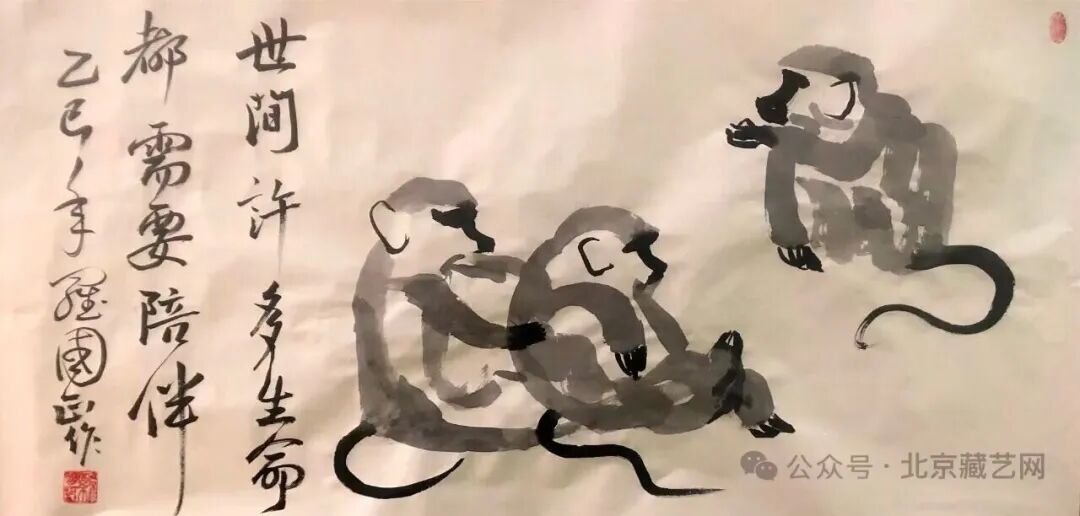 世间許多生命
都需要陪伴
乙巳年羅國正作
公众号·北京藏艺网